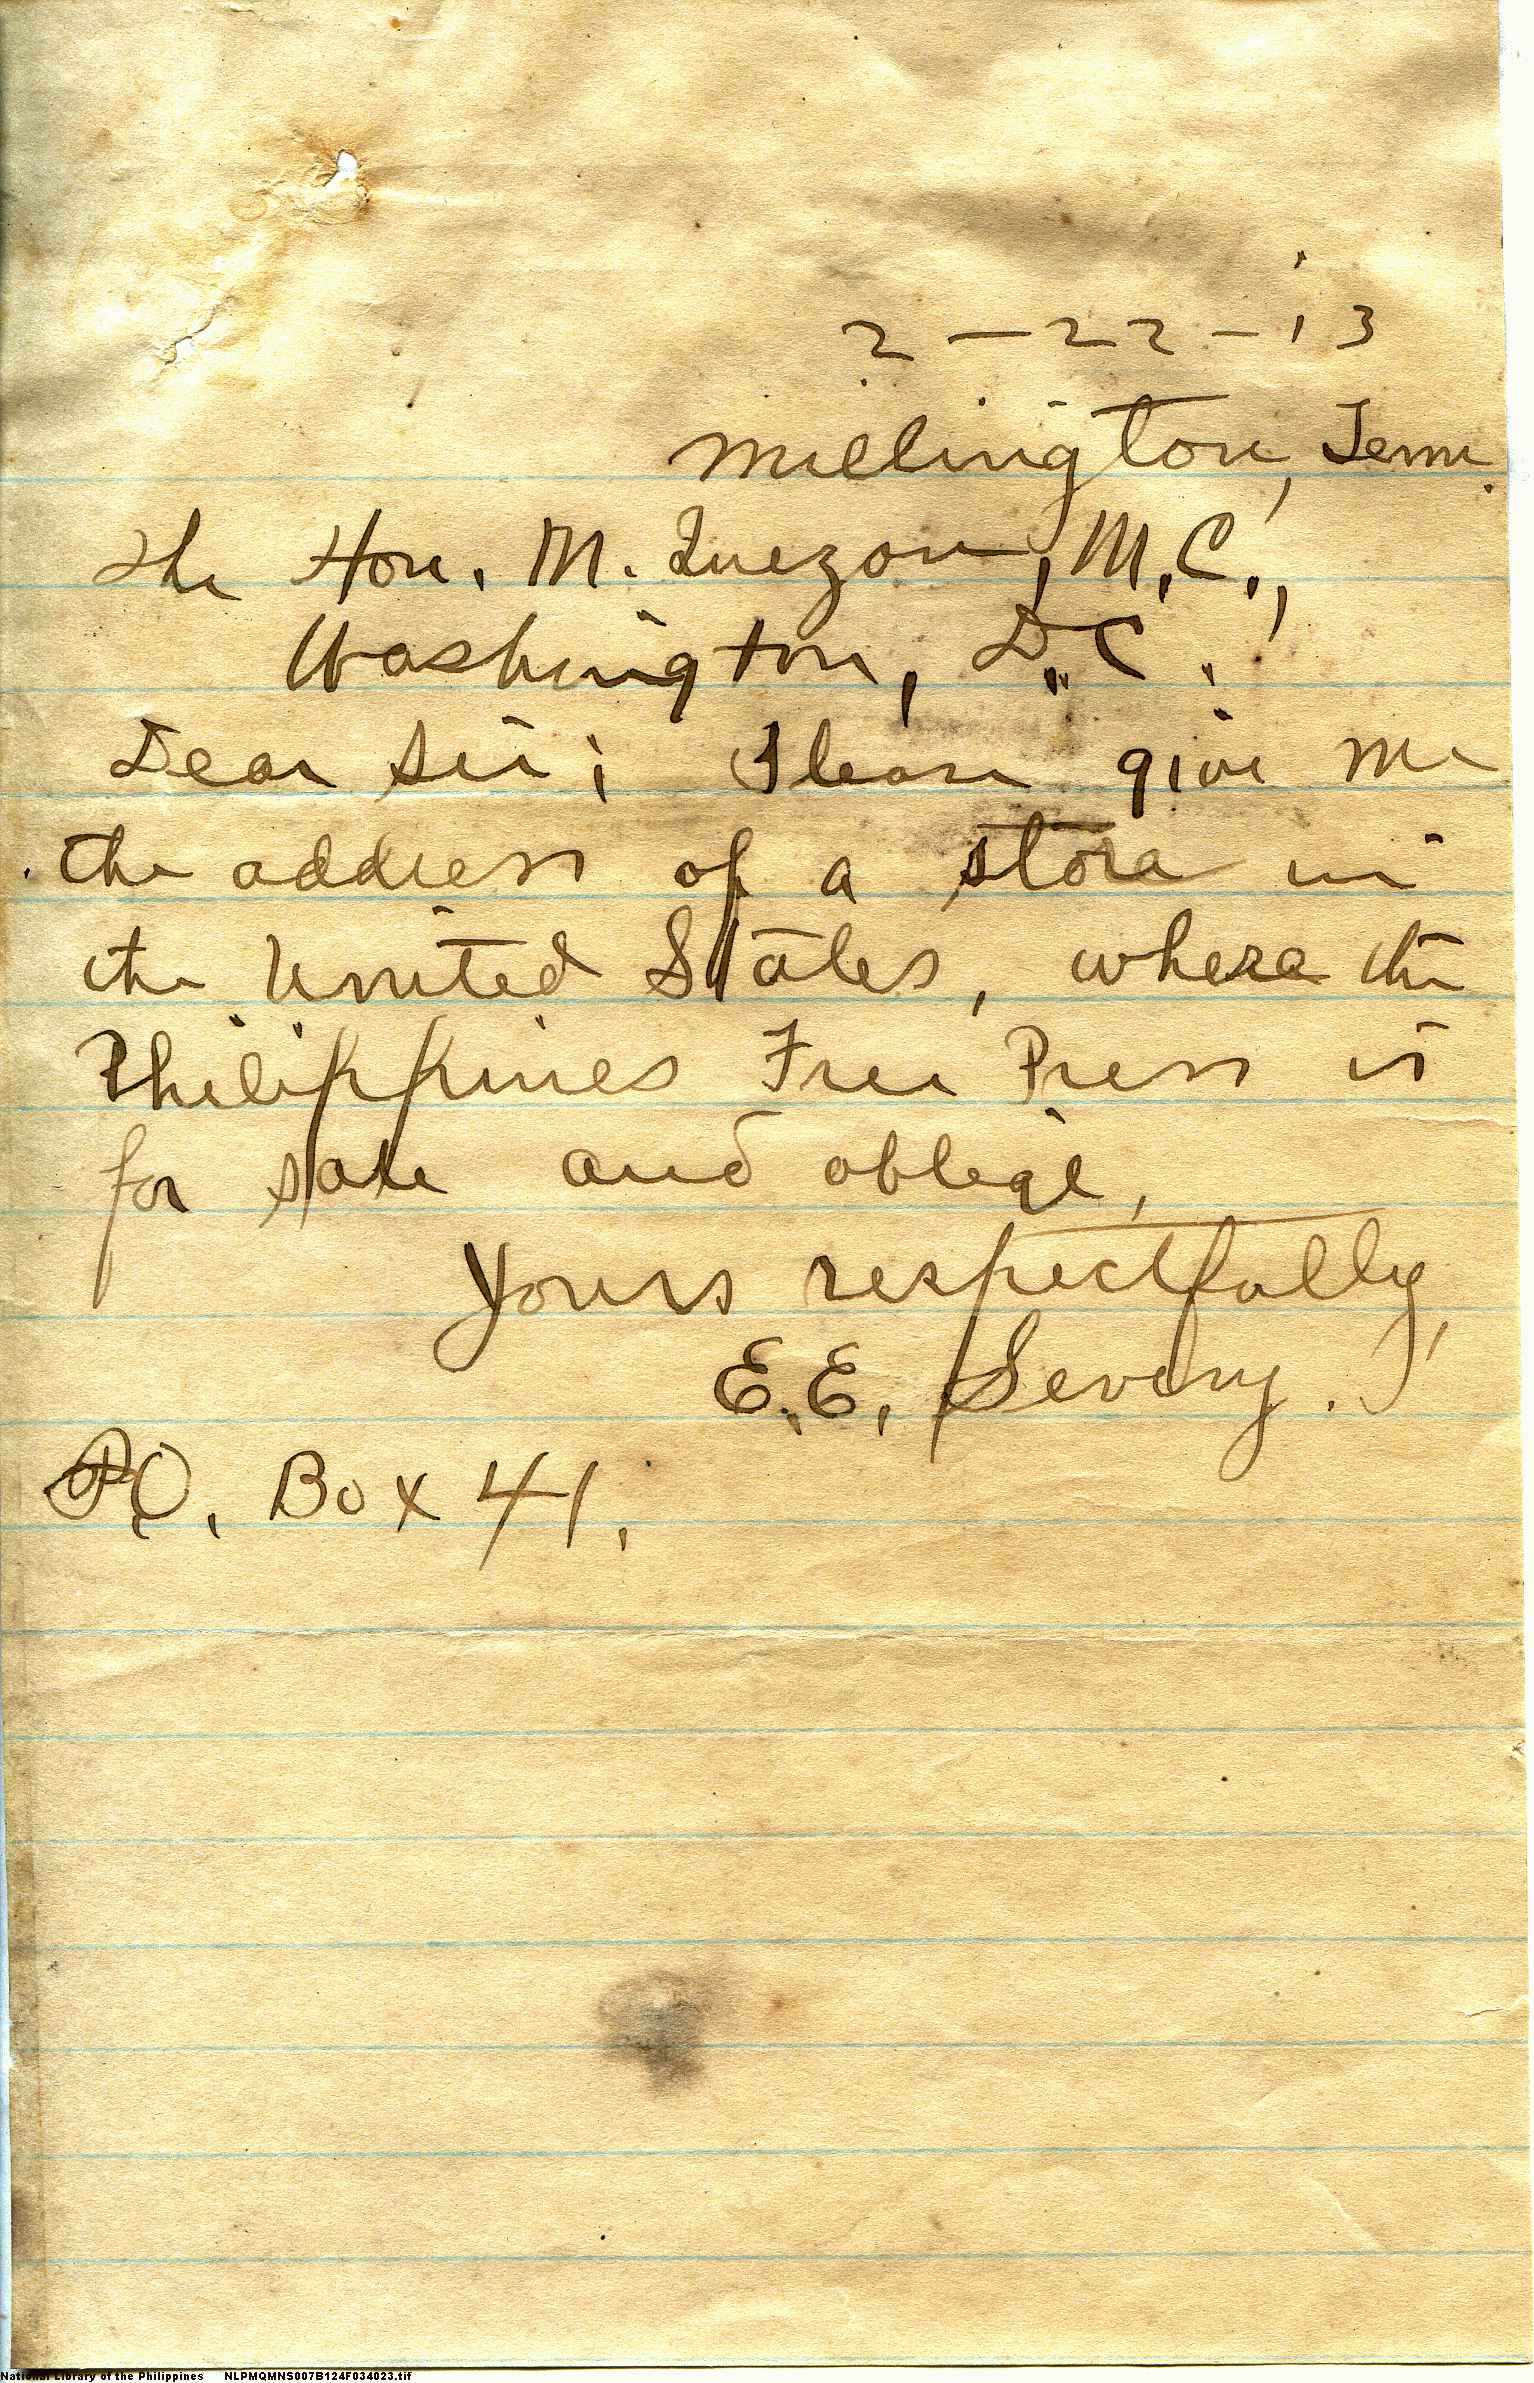 2-22-13
Millington, Tenn.
The Hon. M. Quezon, M.C.,
Washington, D.C.
Dear Sir; Please give me
the address of a store in
the United States, where the
Philippines Free Press is
for sale and oblige,
Yours respectfully,
E.E. Severy.
P.O. Box 41.
National Library of the Philippines NLPMQMNS007B124F034023.tif